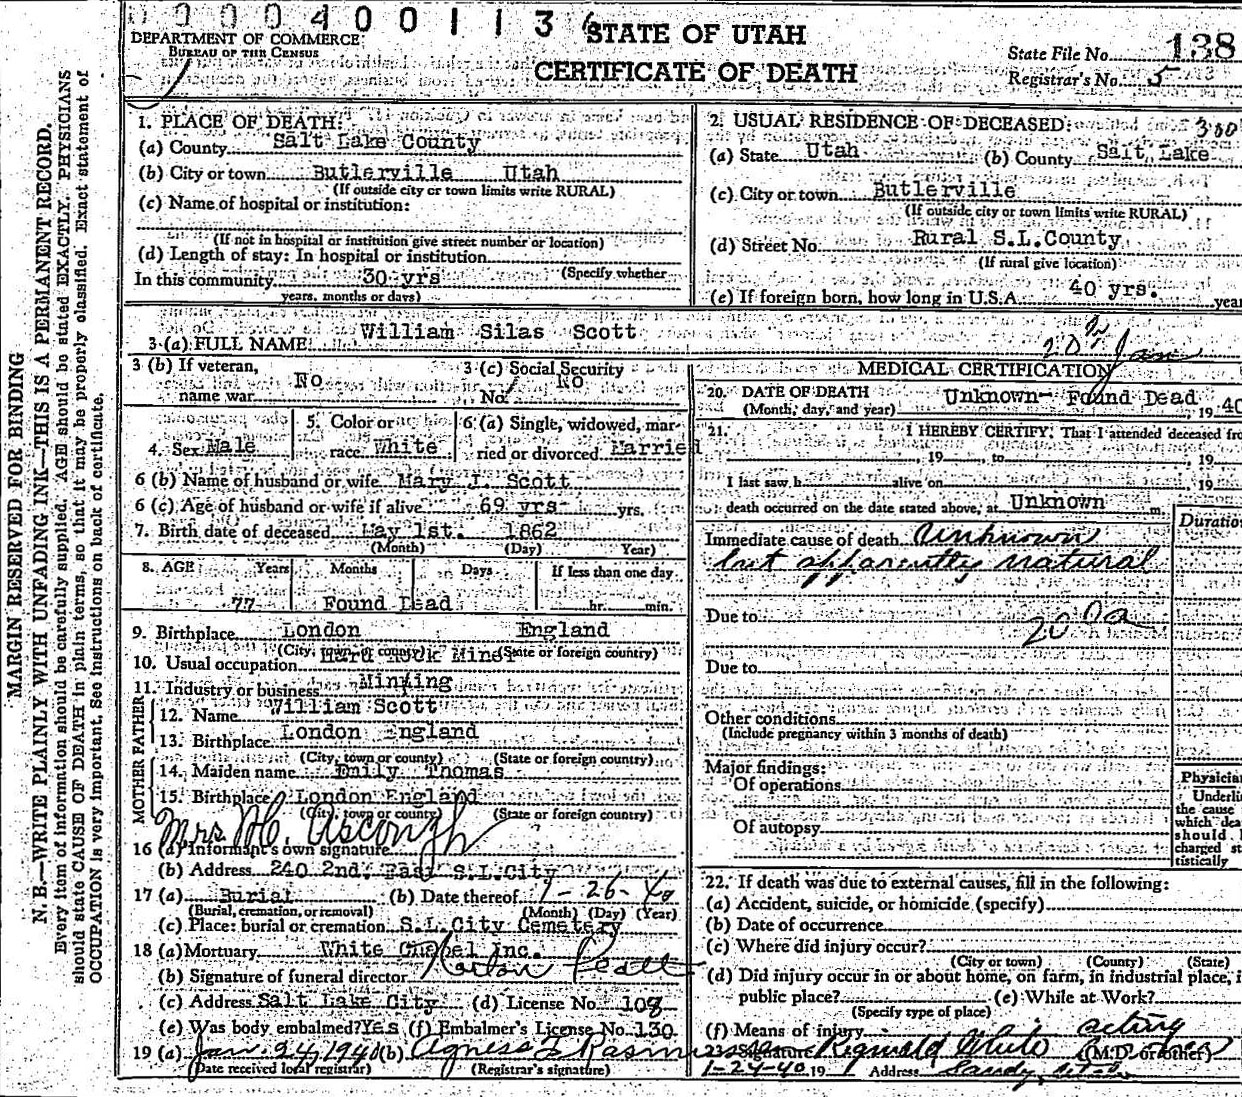 00004001136
STATE OF UTAH
CERTIFICATE OF DEATH
DEPARTMENT OF COMMERCE
BUREAU OF THE CENSUS
State File No. 138
Registrar's No. 5
MARGIN RESERVED FOR BINDING
N. B.—WRITE PLAINLY WITH UNFADING INK—THIS IS A PERMANENT RECORD.
Every item of information should be carefully supplied. AGE should be stated EXACTLY. PHYSICIANS
should state CAUSE OF DEATH in plain terms, so that it may be properly classified. Exact statement of
OCCUPATION is very important. See instructions on back of certificate.
1. PLACE OF DEATH:
(a) County Salt Lake County
(b) City or town Butlerville Utah
(If outside city or town limits write RURAL)
(c) Name of hospital or institution:
(If not in hospital or institution give street number or location)
(d) Length of stay: In hospital or institution
(Specify whether
In this community 30 yrs
years, months or days)
2. USUAL RESIDENCE OF DECEASED: 300
(a) State Utah (b) County Salt Lake
(c) City or town Butlerville
(If outside city or town limits write RURAL)
(d) Street No. Rural S.L.County
(If rural give location)
(e) If foreign born, how long in U.S.A. 40 yrs. year
3 (a) FULL NAME William Silas Scott
3 (b) If veteran, name war No
3 (c) Social Security No. No
4. Sex Male
5. Color or race White
6 (a) Single, widowed, married or divorced Married
6 (b) Name of husband or wife Mary J. Scott
6 (c) Age of husband or wife if alive 69 yrs yrs.
7. Birth date of deceased May 1st. 1862
(Month) (Day) Year)
8. AGE Years Months Days If less than one day
77 Found Dead hr. min.
9. Birthplace London England
(City, town or county) (State or foreign country)
10. Usual occupation Hard Rock Miner
11. Industry or business Minning
FATHER
12. Name William Scott
13. Birthplace London England
(City, town or county) (State or foreign country)
MOTHER
14. Maiden name Emily Thomas
15. Birthplace London England
(City, town or county) (State or foreign country)
Mrs
16 (a) Informant's own signature
(b) Address 240 2nd. East S.L.City
17 (a) Burial (b) Date thereof 1-26-40
(Burial, cremation, or removal) (Month) (Day) (Year)
(c) Place: burial or cremation S.L.City Cemetery
18 (a) Mortuary White Chapel Inc.
(b) Signature of funeral director
(c) Address Salt Lake City (d) License No. 108
(e) Was body embalmed? Yes (f) Embalmer's License No. 130
19 (a) Jan. 24, 1940 (b) Agness
(Date received local registrar) (Registrar's signature)
20th Jan
MEDICAL CERTIFICATION
20. DATE OF DEATH Unknown- Found Dead, 1940
(Month, day, and year)
21. I HEREBY CERTIFY, That I attended deceased fro
, 19 , to , 19
I last saw h alive on , 19
death occurred on the date stated above, at Unknown m.
Duration
Immediate cause of death Unknown
but apparently natural
Due to 200a
Due to
Other conditions
(Include pregnancy within 3 months of death)
Major findings:
Of operations
Of autopsy
Physician
Underli
the cause
which dea
should
charged st
tistically
22. If death was due to external causes, fill in the following:
(a) Accident, suicide, or homicide (specify)
(b) Date of occurrence
(c) Where did injury occur?
(City or town) (County) (State)
(d) Did injury occur in or about home, on farm, in industrial place, i
public place? (e) While at Work?
(Specify type of place)
(f) Means of injury acting
23. Signature Reginald White (M.D. or other)
1-24-40 19 Address Sandy, Utah